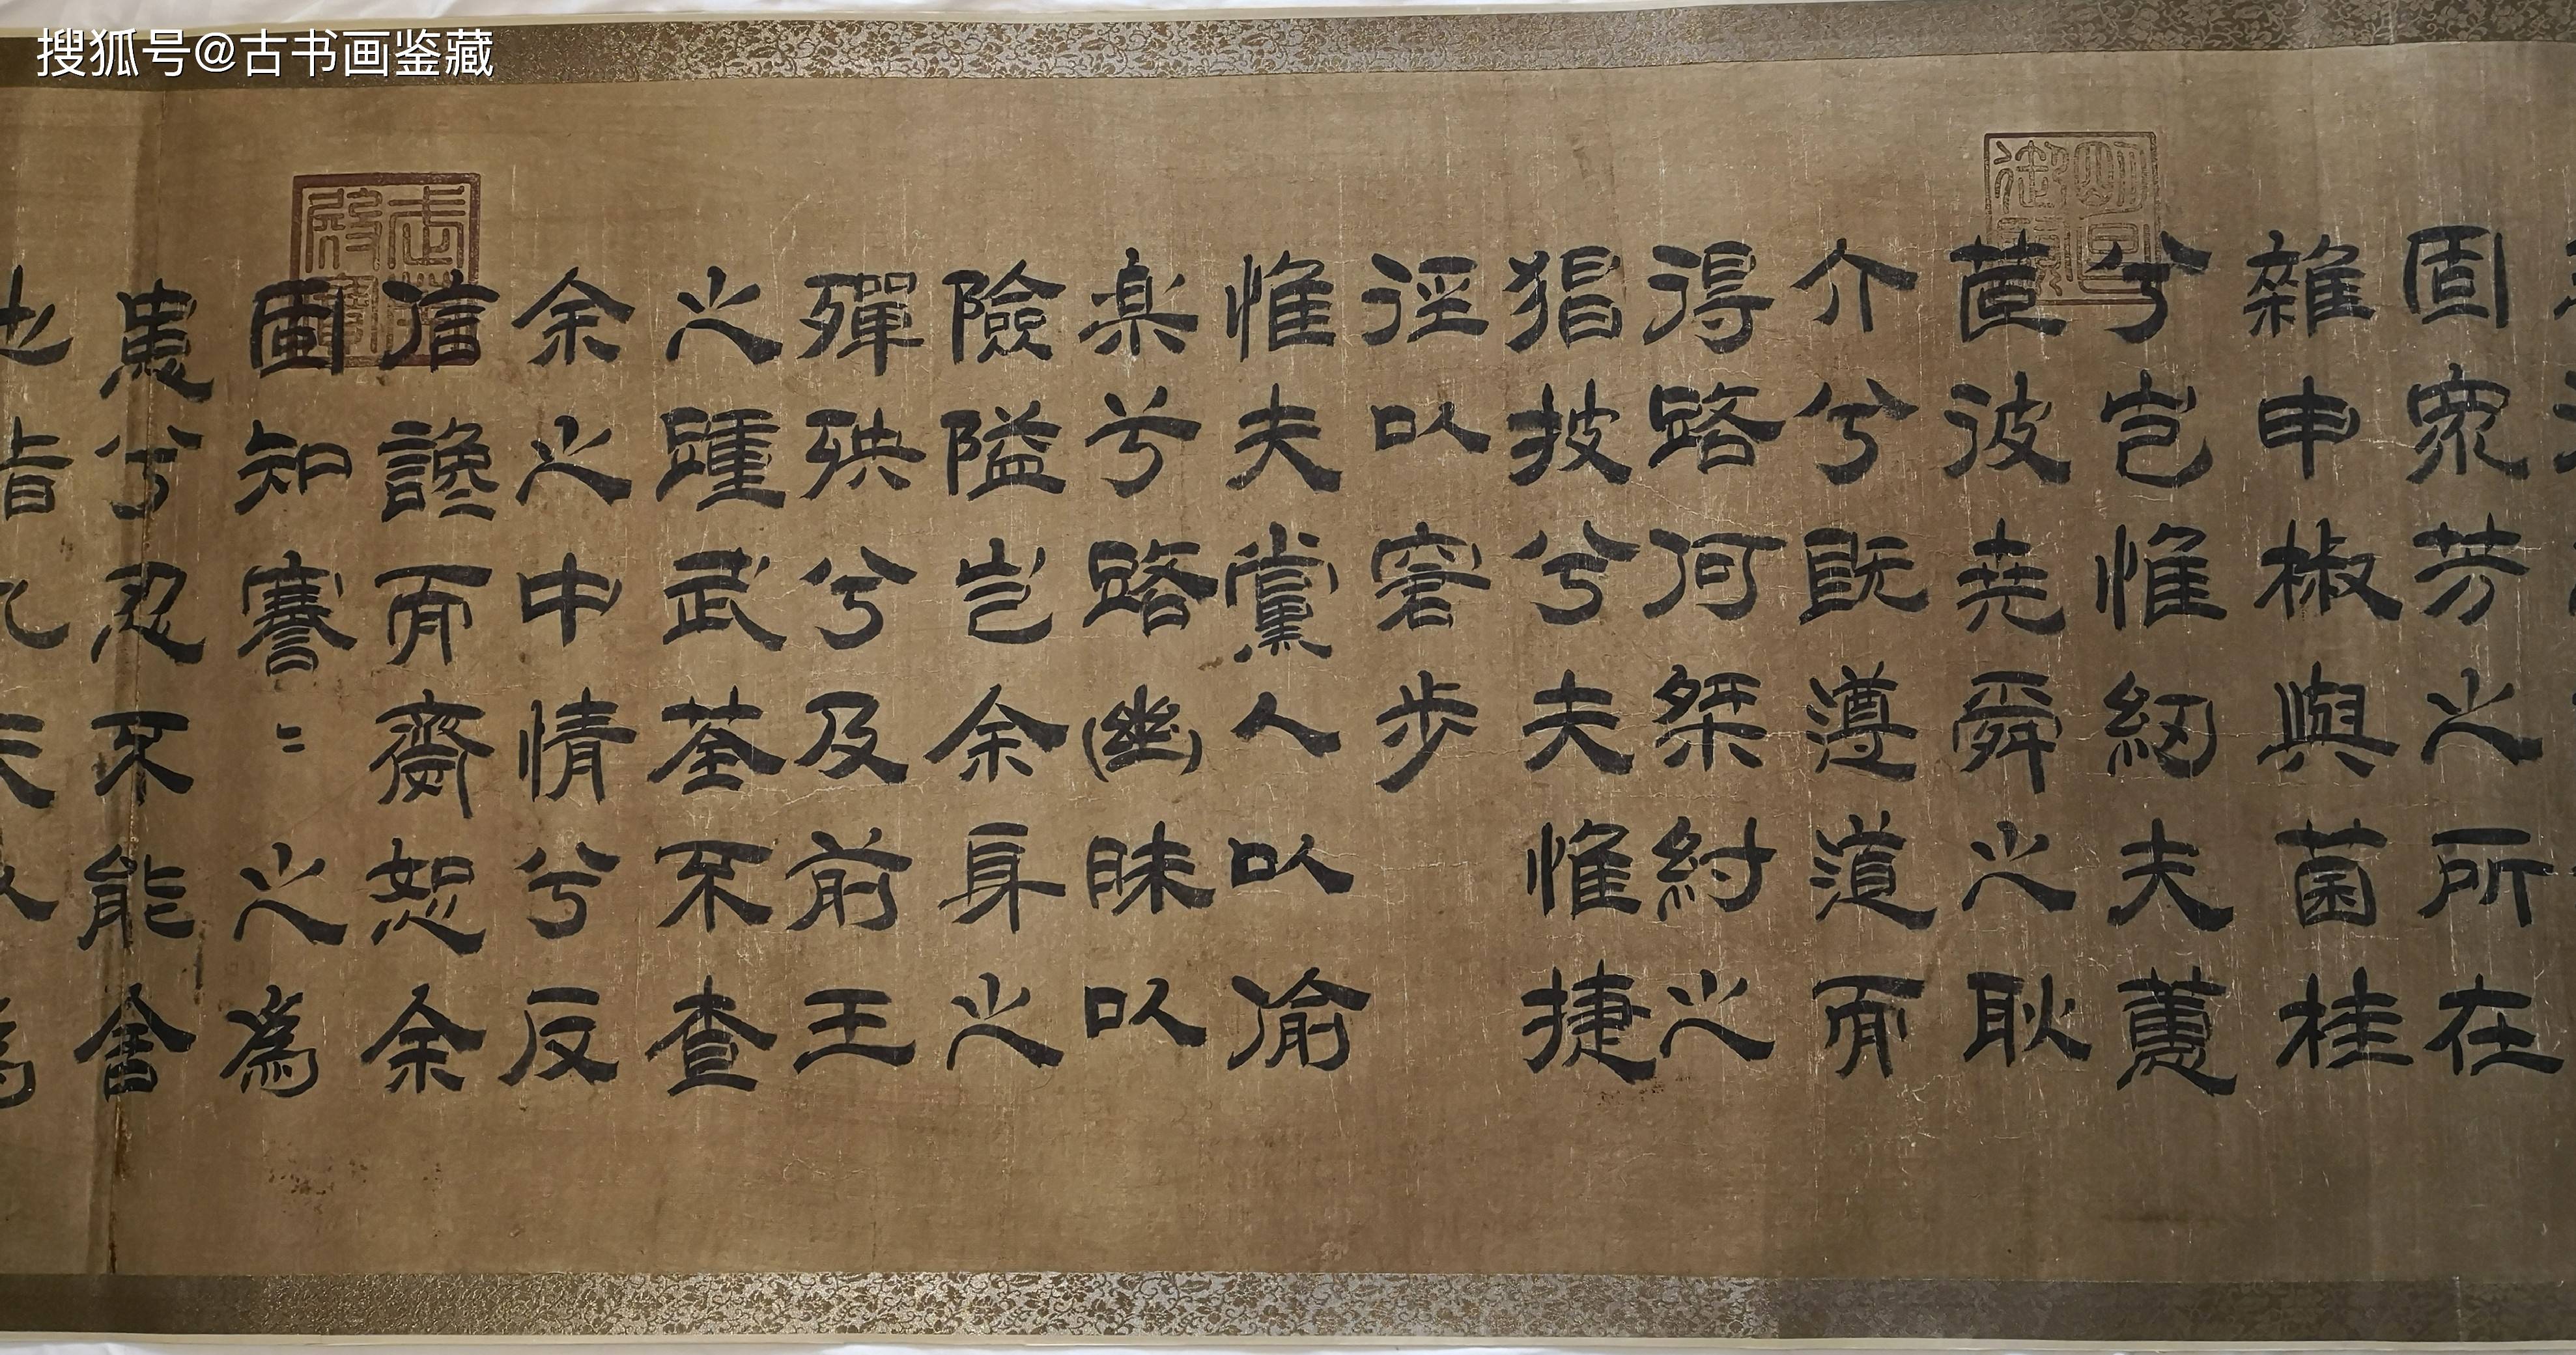 搜狐号@古书画鉴藏
固衆芳之所在
雜申椒與菌桂
兮豈惟紉夫蕙
茝彼堯舜之耿
介兮既遵道而
得路何桀紂之
猖披兮夫惟捷
徑以窘步
惟夫黨人以偷
樂兮路幽昧以
險隘豈余身之
殫殃兮及前王
之踵武荃不查
余之中情兮反
信讒而齋恕余
固知謇〻之爲
患兮忍不能舍
也指九天以爲